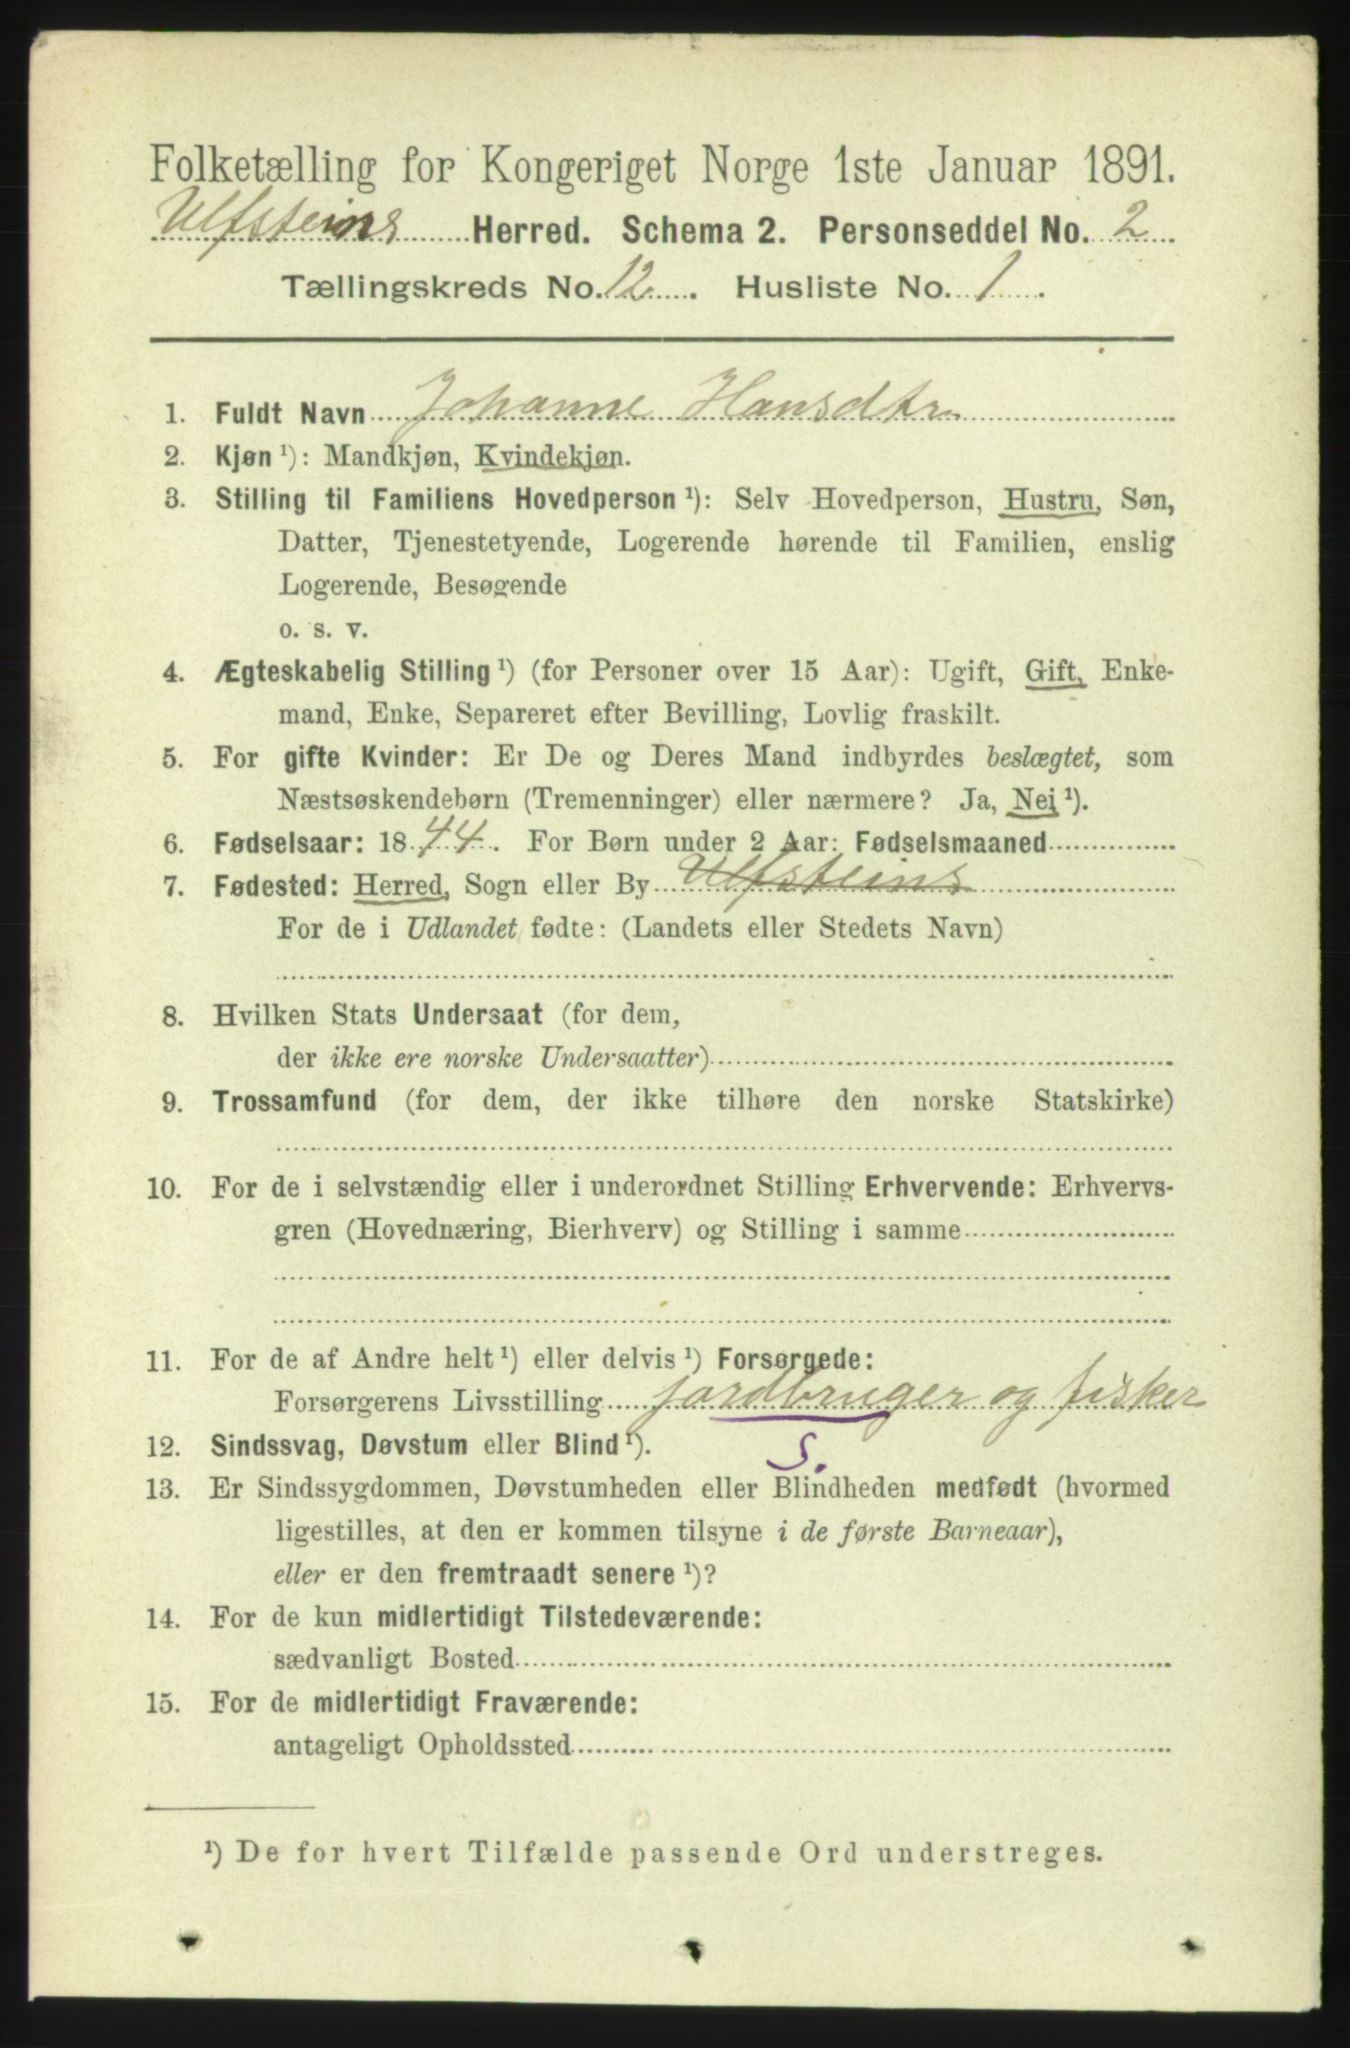 Folketælling for Kongeriget Norge 1ste Januar 1891.
Ulfsteins Herred. Schema 2. Personseddel No. 2
Tællingskreds No. 12. Husliste No. 1.
1. Fuldt Navn Johanne Hansdtr
2. Kjøn ¹): Mandkjøn, Kvindekjøn.
3. Stilling til Familiens Hovedperson ¹): Selv Hovedperson, Hustru, Søn,
Datter, Tjenestetyende, Logerende hørende til Familien, enslig
Logerende, Besøgende
o. s. v.
4. Ægteskabelig Stilling ¹) (for Personer over 15 Aar): Ugift, Gift, Enke-
mand, Enke, Separeret efter Bevilling, Lovlig fraskilt.
5. For gifte Kvinder: Er De og Deres Mand indbyrdes beslægtet, som
Næstsøskendebørn (Tremenninger) eller nærmere? Ja, Nei ¹).
6. Fødselsaar: 1844. For Børn under 2 Aar: Fødselsmaaned
7. Fødested: Herred, Sogn eller By Ulfsteins
For de i Udlandet fødte: (Landets eller Stedets Navn)
8. Hvilken Stats Undersaat (for dem,
der ikke ere norske Undersaatter)
9. Trossamfund (for dem, der ikke tilhøre den norske Statskirke)
10. For de i selvstændig eller i underordnet Stilling Erhvervende: Erhvervs-
gren (Hovednæring, Bierhverv) og Stilling i samme
11. For de af Andre helt ¹) eller delvis ¹) Forsørgede:
Forsørgerens Livsstilling jordbruger og fisker
12. Sindssvag, Døvstum eller Blind ¹). S.
13. Er Sindssygdommen, Døvstumheden eller Blindheden medfødt (hvormed
ligestilles, at den er kommen tilsyne i de første Barneaar),
eller er den fremtraadt senere ¹)?
14. For de kun midlertidigt Tilstedeværende:
sædvanligt Bosted
15. For de midlertidigt Fraværende:
antageligt Opholdssted
¹) De for hvert Tilfælde passende Ord understreges.